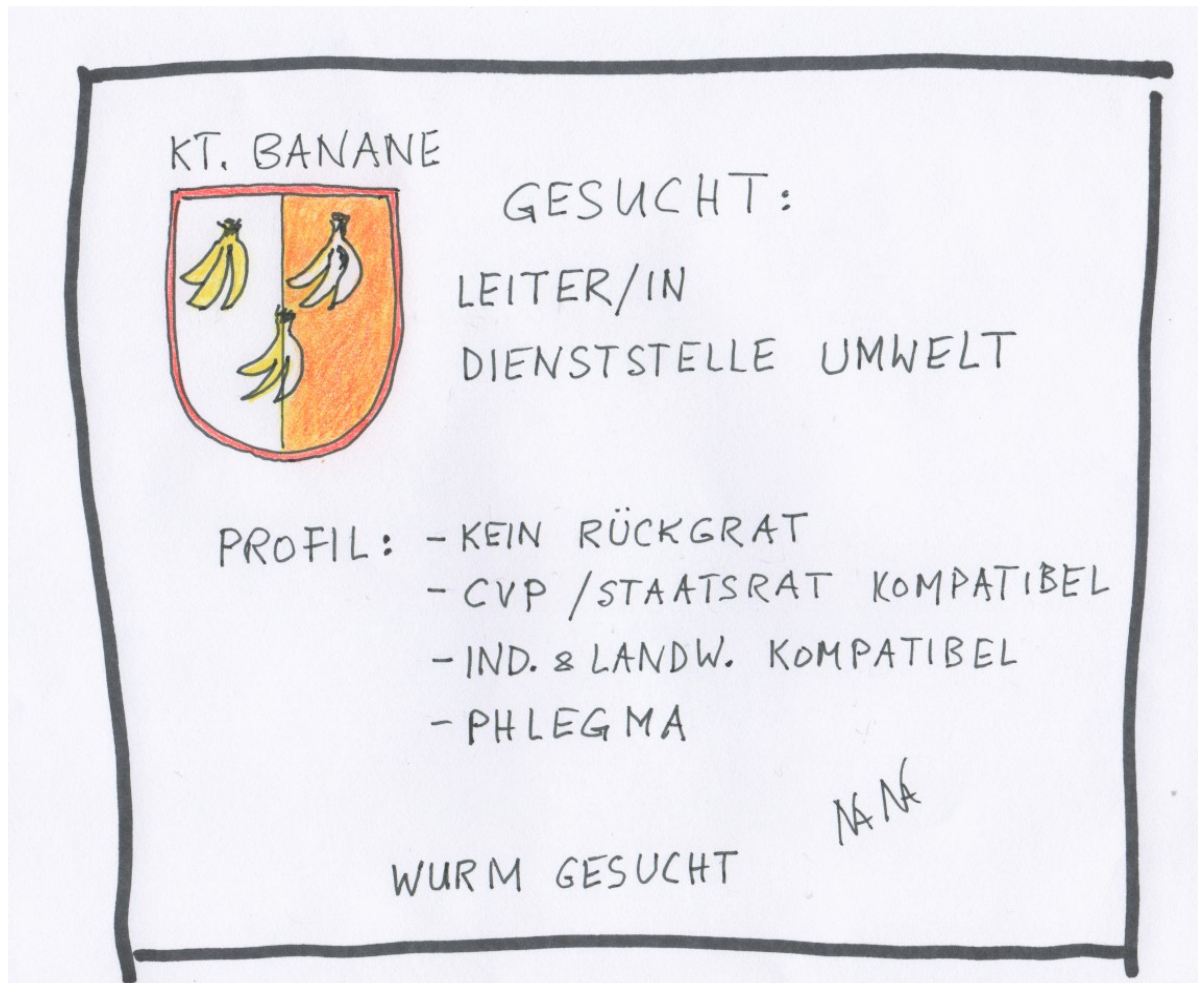 KT. BANANE
GESUCHT:
LEITER/IN
DIENSTSTELLE UMWELT
PROFIL: - KEIN RÜCKGRAT
- CVP / STAATSRAT KOMPATIBEL
- IND. & LANDW. KOMPATIBEL
- PHLEGMA
NANA
WURM GESUCHT